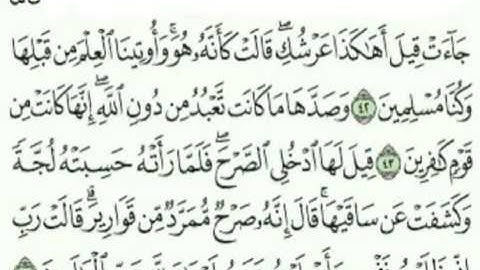 جَآءَتۡ قِيلَ أَهَٰكَذَا عَرۡشُكِۖ قَالَتۡ كَأَنَّهُۥ هُوَۚ وَأُوتِينَا ٱلۡعِلۡمَ مِن قَبۡلِهَا
وَكُنَّا مُسۡلِمِينَ ٤٢ وَصَدَّهَا مَا كَانَت تَّعۡبُدُ مِن دُونِ ٱللَّهِۖ إِنَّهَا كَانَتۡ مِن
قَوۡمٖ كَٰفِرِينَ ٤٣ قِيلَ لَهَا ٱدۡخُلِي ٱلصَّرۡحَۖ فَلَمَّا رَأَتۡهُ حَسِبَتۡهُ لُجَّةٗ
وَكَشَفَتۡ عَن سَاقَيۡهَاۚ قَالَ إِنَّهُۥ صَرۡحٞ مُّمَرَّدٞ مِّن قَوَارِيرَۗ قَالَتۡ رَبِّ